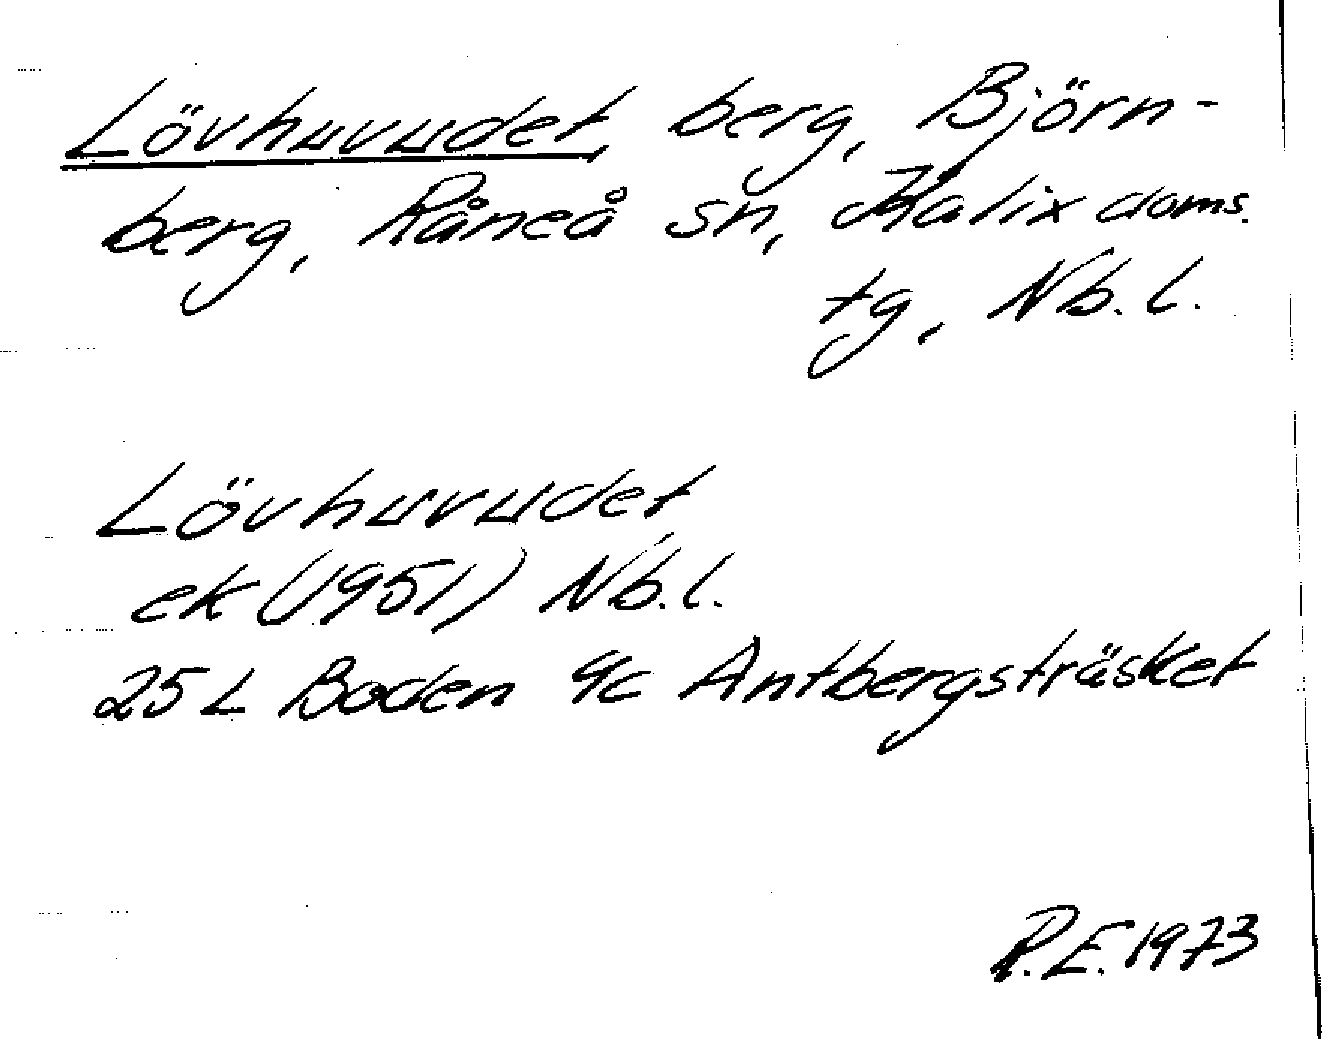 Lövhuvudet, berg, Björn-
berg, Råneå sn, Kalix doms.
tg, Nb. l.
Lövhuvudet
ek (1951) Nb. l.
25 L Boden 9c Antbergsträsket
R.E. 1973